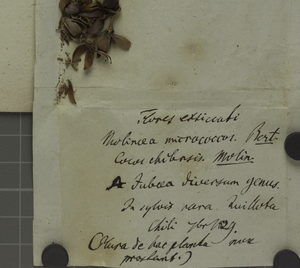 Flores exsiccati
Molinæa micrococos. Bert.
Cocos chilensis. Molin.
Jubæa diversum genus.
In sylvis rara. Quillota
Chili 7br 1829.
(Plura de hac planta nux
prostant.)